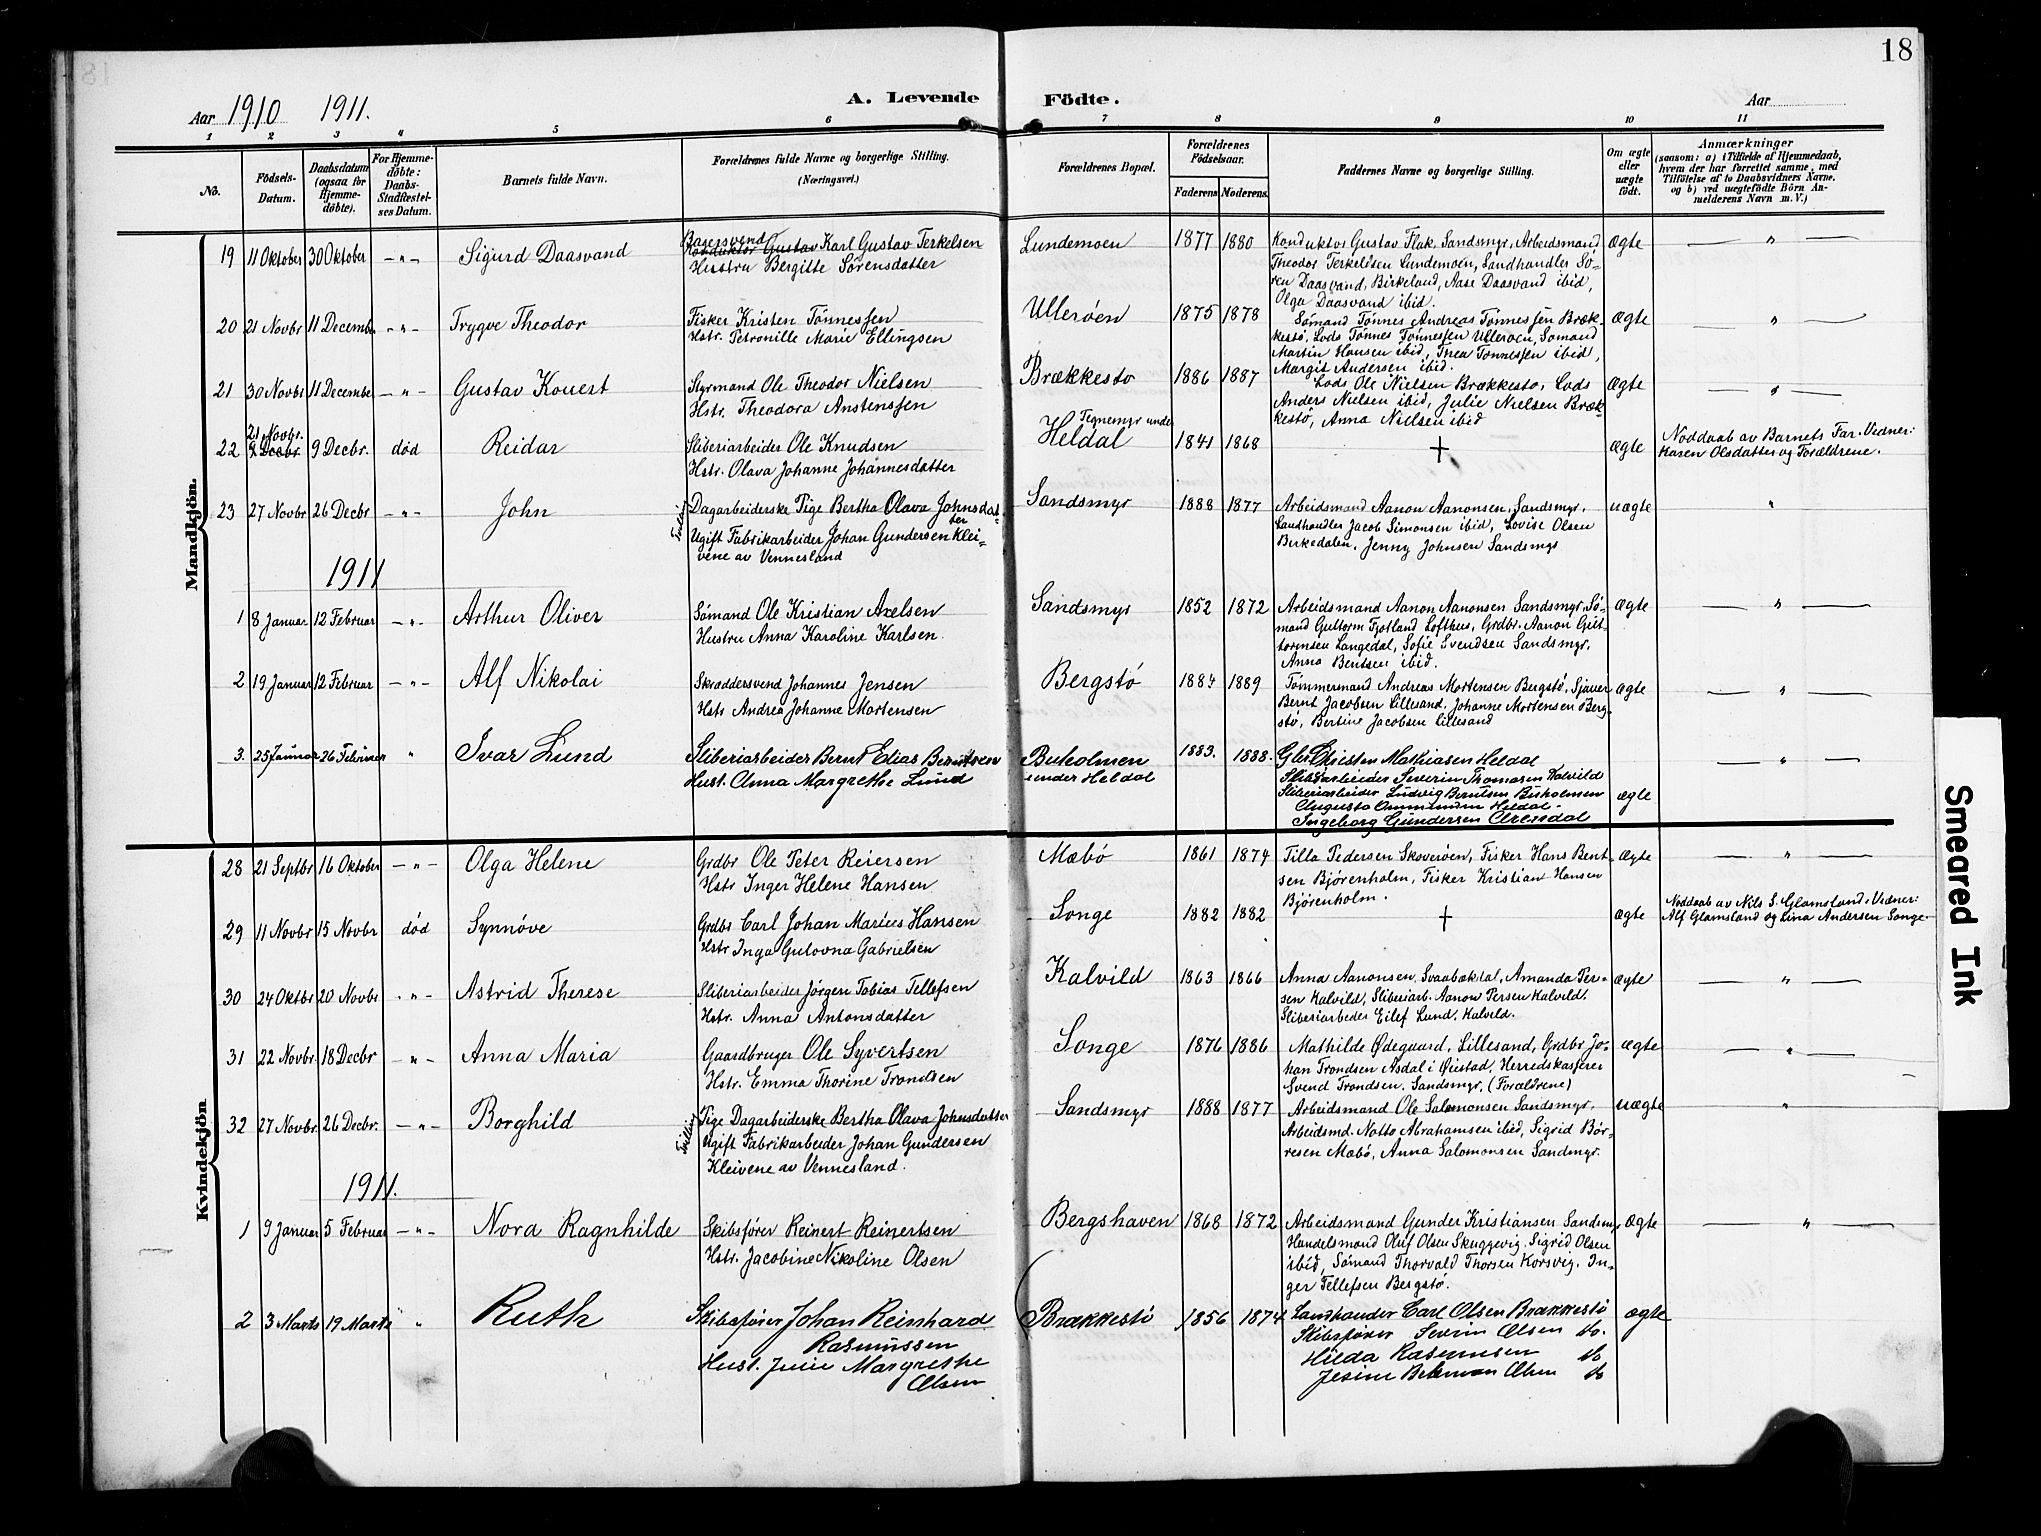 18
Aar 1910 1911.
A. Levende Födte.
Aar
1 2 3 4 5 6 7 8 9 10 11
No.
Födsels-Datum.
Daabsdatum (ogsaa for Hjemme-döbte).
For Hjemme-döbte: Daabs-Stadfæstel-ses Datum.
Barnets fulde Navn.
Forældrenes fulde Navne og borgerlige Stilling. (Næringsvei.)
Forældrenes Bopæl.
Forældrenes Födselsaar.
Faderens. Moderens.
Faddernes Navne og borgerlige Stilling.
Om ægte eller uægte födt.
Anmærkninger
(saasom: a) i Tilfælde af Hjemmedaab,
hvem der har forrettet samme, med
Tilföielse af to Daabsvidners Navne,
og b) ved uægtefödte Börn An-
melderens Navn m. V.)
Mandkjön.
19 11 Oktober 30 Oktober —"— Sigurd Daasvand
Bagersvend
Konduktör Gustav Karl Gustav Terkelsen
Hustru Bergitte Sørensdatter
Lundemoen 1877 1880
Konduktør Gustav Flak, Sandsmyr, Arbeidsmand
Theodor Terkelsen Lundemoen, Landhandler Sö-
ren Daasvand, Birkeland, Aase Daasvand ibid,
Olga Daasvand ibid.
ægte — " —
20 21 Novbr 11 December —"— Trygve Theodor
Fisker Kristen Tönnessen
Hstr. Petronille Marie Ellingsen
Ulleröen 1875 1878
Sömand Tönnes Andreas Tönnessen Bræk-
kestö, Lods Tönnes Tönnessen Ulleröen, Sömand
Martin Hansen ibid, Thea Tönnessen ibid,
Margit Andersen ibid.
ægte — " —
21 30 Novbr 11 December —"— Gustav Kovert
Styrmand Ole Theodor Nielsen
Hstr. Theodora Anstenssen
Brækkestö 1886 1887
Lods Ole Nielsen Brækkestö, Lods
Anders Nielsen ibid, Julie Nielsen Bræk-
kestö, Anna Nielsen ibid
ægte — " —
22 21 Novbr. 9 Decbr. 9 Decbr. död Reidar
Sliberiarbeider Ole Knudsen
Hstr. Olava Johanne Johannesdatter
Tegnemyr under
Heldal 1841 1868
+
ægte
Nöddaab av Barnets Far. Vidner:
Karen Olsdatter og Forældrene.
23 27 Novbr 26 Decbr —"— John
Tvilling
Dagarbeiderske Pige Bertha Olava Johnsdat-
ter
Ugift Fabrikarbeider Johan Gundersen Klei-
vene av Vennesland
Sandsmyr 1888 1877
Arbeidsmand Aanon Aanonsen, Sandsmyr,
Landhandler Jacob Simonsen ibid, Lovise Olsen
Birkedalen, Jenny Johnsen Sandsmyr
uægte "
1911
1 8 Januar 12 Februar —"— Arthur Oliver
Sömand Ole Kristian Axelsen
Hustru Anna Karoline Karlsen.
Sandsmyr 1852 1872
Arbeidsmand Aanon Aanonsen Sandsmyr, Sö-
mand Guttorm Fjotland Lofthus, Grdbr. Aanon Gut-
tormsen Langedal, Sofie Svendsen Sandsmyr,
Anna Bentsen ibid.
ægte — " —
2 19 Januar 12 Februar —"— Alf Nikolai
Skræddersvend Johannes Jensen
Hstr Andrea Johanne Mortensen
Bergstö 1884 1889
Tömmermand Andreas Mortensen Bergstö, Sjauer
Bernt Jacobsen Lillesand, Johanne Mortensen Berg-
stö, Bertine Jacobsen Lillesand
ægte — " —
3. 25 Januar 26 Februar " Ivar Lund
Sliberiarbeider Bernt Elias Berntsen
Hust. Anna Margrethe Lund
Buholmen
under Heldal
1883. 1888.
Christen Mathiasen Heldal
Sliberiarbeider Severin Thomasen Kalvild
Sliberiarbeider Ludvig Berntsen Buholmen
Augusta Ommundsen Heldal.
Ingeborg Gundersen Arendal
ægte — " —
Kvindekjön
28 21 Septbr 16 Oktober —"— Olga Helene
Grdbr Ole Peter Reiersen
Hstr Inger Helene Hansen
Mæbö 1861 1874
Tilla Pedersen Skoveröen, Fisker Hans Bent-
sen Björenholm, Fisker Kristian Hansen
Björenholm.
ægte — " —
29 11 Novbr 15 Novbr död Synnöve
Grdbr Carl Johan Marius Hansen
Hstr Inga Gulovna Gabrielsen
Songe 1882 1882
+
ægte
Nöddaab av Nils S. Glamsland. Vidner:
Alf Glamsland og Lina Andersen Songe.
30 24 Oktbr 20 Novbr —"— Astrid Therese
Sliberiarbeider Jörgen Tobias Tellefsen
Hstr. Anna Antonsdatter
Kalvild 1863 1866
Anna Aanonsen, Svaabækdal, Amanda Per-
sen Kalvild, Sliberiarb. Aanon Persen Kalvild,
Sliberiarbeider Eilef Lund, Kalvild.
ægte — " —
31 22 Novbr. 18 Decbr —"— Anna Maria
Gaardbruger Ole Syvertsen
Hstr. Emma Thorine Trondsen
Songe 1876 1886
Mathilde Ødegaard, Lillesand, Grdbr Jo-
han Trondsen Asdal i Öiestad, Herredskasserer
Svend Trondsen, Sandsmyr, (Forældrene)
ægte — " —
32 27 Novbr. 26 Decbr. —"— Borghild
Tvilling
Pige Dagarbeiderske Bertha Olava Johnsdatter
Ugift Fabrikarbeider Johan Gundersen
Kleivene av Vennesland.
Sandsmyr 1888 1877
Arbeidsmand Ole Salomonsen Sandsmyr,
Arbeidsmd. Notto Abrahamsen ibid, Sigrid Bör-
resen Mæbö, Anna Salomonsen Sandsmyr.
uægte "
1911.
1 9 Januar 5 Februar —"— Nora Ragnhilde
Skibsförer Reinert Reinertsen
Hstr. Jacobine Nikoline Olsen
Bergshaven 1868 1872
Arbeidsmand Gunder Kristiansen Sandsmyr
Handelsmand Oluf Olsen Skuggevig, Sigrid Olsen
ibid, Sömand Thorvald Thorsen Korsvig, In-
ger Tellefsen Bergstö.
ægte — " —
2 3 Marts 19 Marts " Ruth
Skibsförer Johan Reinhard
Rasmussen
Hust. Julie Margrethe
Olsen
Brækkestö 1856 1874
Landhandler Carl Olsen Brækkestö
Skibsförer Severin Olsen do.
Hilda Rasmussen do
Jesine Olsen do
ægte
Smeared Ink